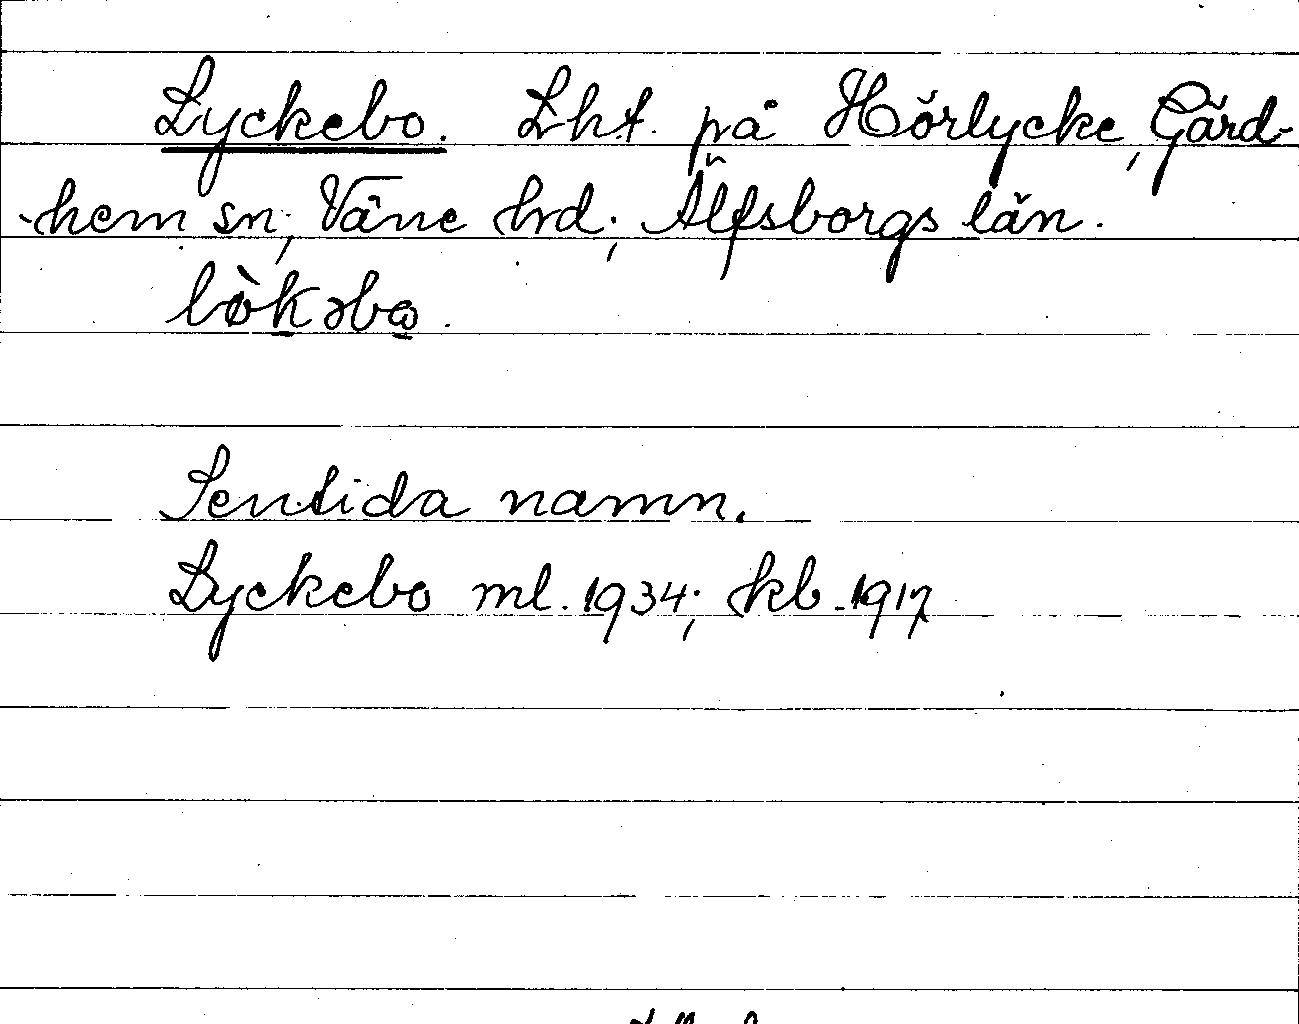 Lyckebo. Lht. på Hörlycke, Gärd-
hem sn; Väne hrd; Älfsborgs län.
Sentida namn.
Lyckebo ml. 1934; kb. 1917